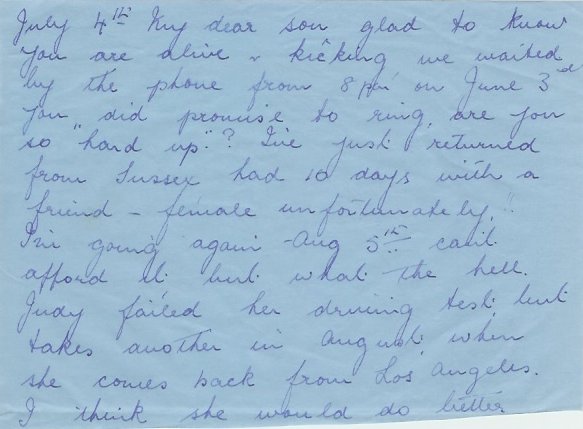 July 4th My dear son glad to know
you are alive & kicking we waited
by the phone from 8 pm on June 3rd
You did promise to ring, are you
so "hard up"? I've just returned
from Sussex had 10 days with a
friend - female unfortunately!!
I'm going again - Aug 5th can't
afford it but what the hell.
Judy failed her driving test but
takes another in August, when
she comes back from Los Angeles.
I think she would do better